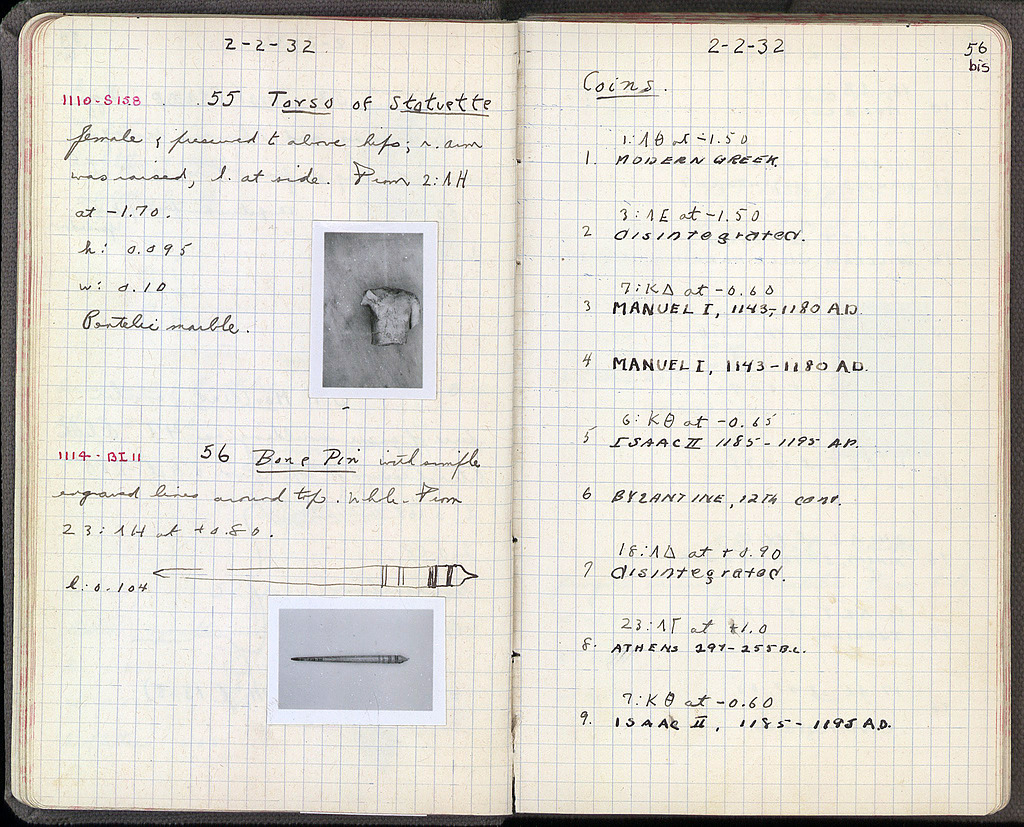 2-2-32
1110-S158 55 Torso of Statuette
female; preserved to above hips; r. arm
was raised, l. at side. From 2:ΛH
at -1.70.
h: 0.095
w: 0.10
Pentelic marble.
1114-BI11 56 Bone Pin with simple
engraved lines around top. Whole. From
23:ΛH at +0.80.
l: 0.104
2-2-32
56
bis
Coins.
1:Λθ at -1.50
1. MODERN GREEK
3:ΛE at -1.50
2 disintegrated.
7:KΔ at -0.60
3 MANUEL I, 1143-1180 A.D.
4 MANUEL I, 1143-1180 A.D.
6:Kθ at -0.65
5 ISAAC II 1185-1195 A.D.
6 BYZANTINE, 12TH cent.
18:ΛΔ at +0.90
7 disintegrated.
23:ΛΓ at +1.0
8. ATHENS 297-255 B.C.
7:Kθ at -0.60
9. ISAAC II, 1185-1195 A.D.